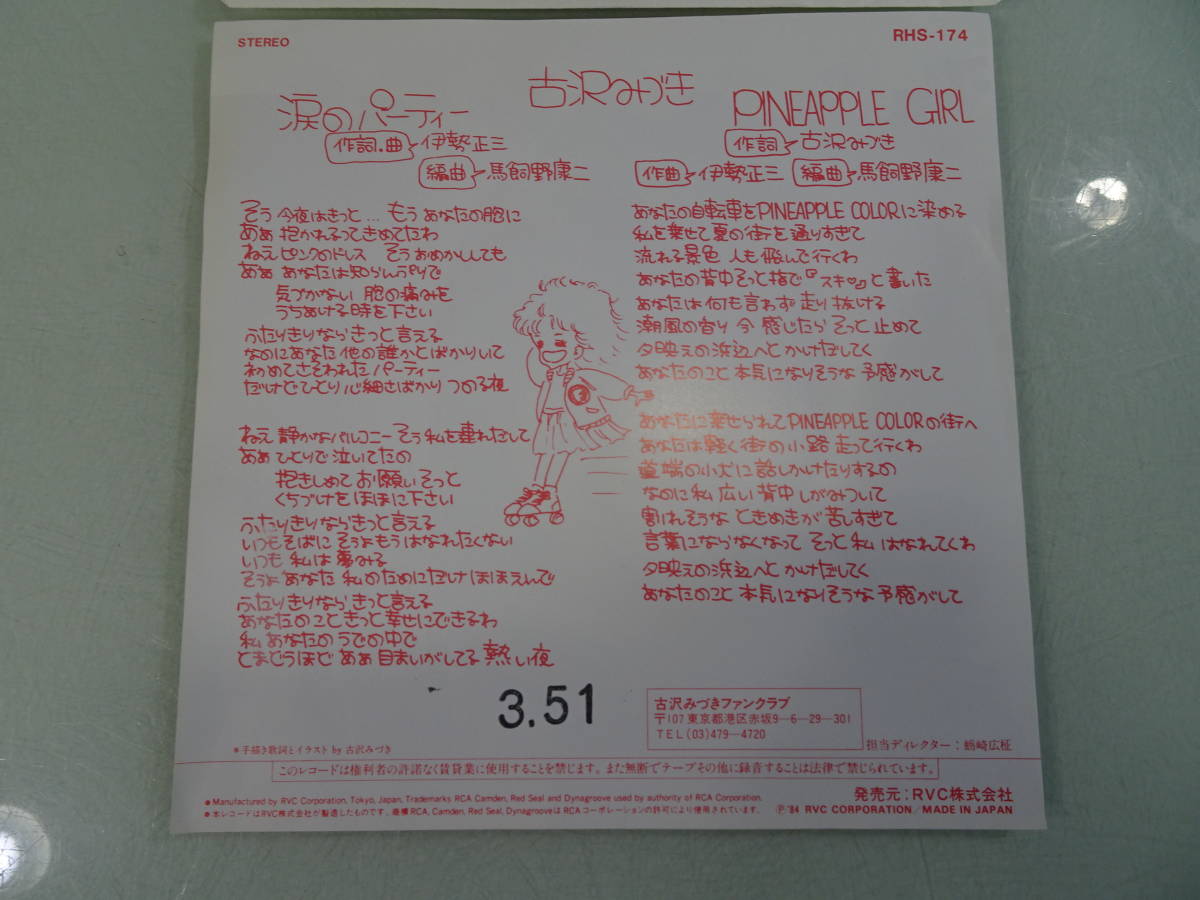 STEREO
RHS-174
古沢みづき
涙のパーティー
作詞.曲 伊勢正三
編曲 馬飼野康二
そう 今夜はきっと … もう あなたの胸に
ああ 抱かれるってきめてたわ
ねえ ピンクのドレス そう おめかししても
ああ あなたは知らんぷりで
気づかない 胸の痛みを
うちあける時を下さい
ふたりきりなら きっと言える
なのにあなた 他の誰かとばかりいて
わめてさそわれた パーティー
だけどひとり 心細さばかり つのる夜
ねえ 静かなバルコニー そう 私を連れだして
ああ ひとりで 泣いてたの
抱きしめて お願い そっと
くちづけを ほほに下さい
ふたりきりなら きっと言える
いつもそばに そうよ もう はなれたくない
いつも 私は 夢みる
そうよ あなた 私のためにだけ ほほえんで
ふたりきりなら きっと言える
あなたのこと きっと 幸せにできるわ
私 あなたの うでの中で
とまどうほど ああ 目まいがしてる 熱い夜
PINEAPPLE GIRL
作詞 古沢みづき
作曲 伊勢正三 編曲 馬飼野康二
あなたの自転車をPINEAPPLE COLORに染める
私を乗せて 夏の街を 通りすぎて
流れる景色 人も 飛んで行くわ
あなたの背中そっと指で『スキ♡』と書いた
あなたは 何も言わず 走り抜ける
潮風の香り 今 感じたら そっと 止めて
夕映えの浜辺へと かけだしてく
あなたのこと 本気になりそうな 予感がして
あなたに乗せられて PINEAPPLE COLORの街へ
あなたは軽く街の小路 走って行くわ
道端の小犬に 話しかけたりするの
なのに私 広い背中 しがみついて
割れそうな ときめきが 苦しすぎて
言葉にならなくなって そっと 私 はなれてくわ
夕映えの浜辺へと かけだしてく
あなたのこと 本気になりそうな 予感がして
3.51
古沢みづきファンクラブ
〒107 東京都港区赤坂9-6-29-301
TEL(03)479-4720
＊手描き歌詞とイラスト by 古沢みづき
担当ディレクター：蛎崎広柾
このレコードは権利者の許諾なく賃貸業に使用することを禁じます。また無断でテープその他に録音することは法律で禁じられています。
●Manufactured by RVC Corporation, Tokyo, Japan, Trademarks RCA Camden, Red Seal and Dynagroove used by authority of RCA Corporation.
●本レコードはRVC株式会社が製造したものです。商標RCA, Camden, Red Seal, DynagrooveはRCAコーポレーションの許可により使用されています。
発売元：RVC株式会社
Ⓟ '84 RVC CORPORATION／MADE IN JAPAN